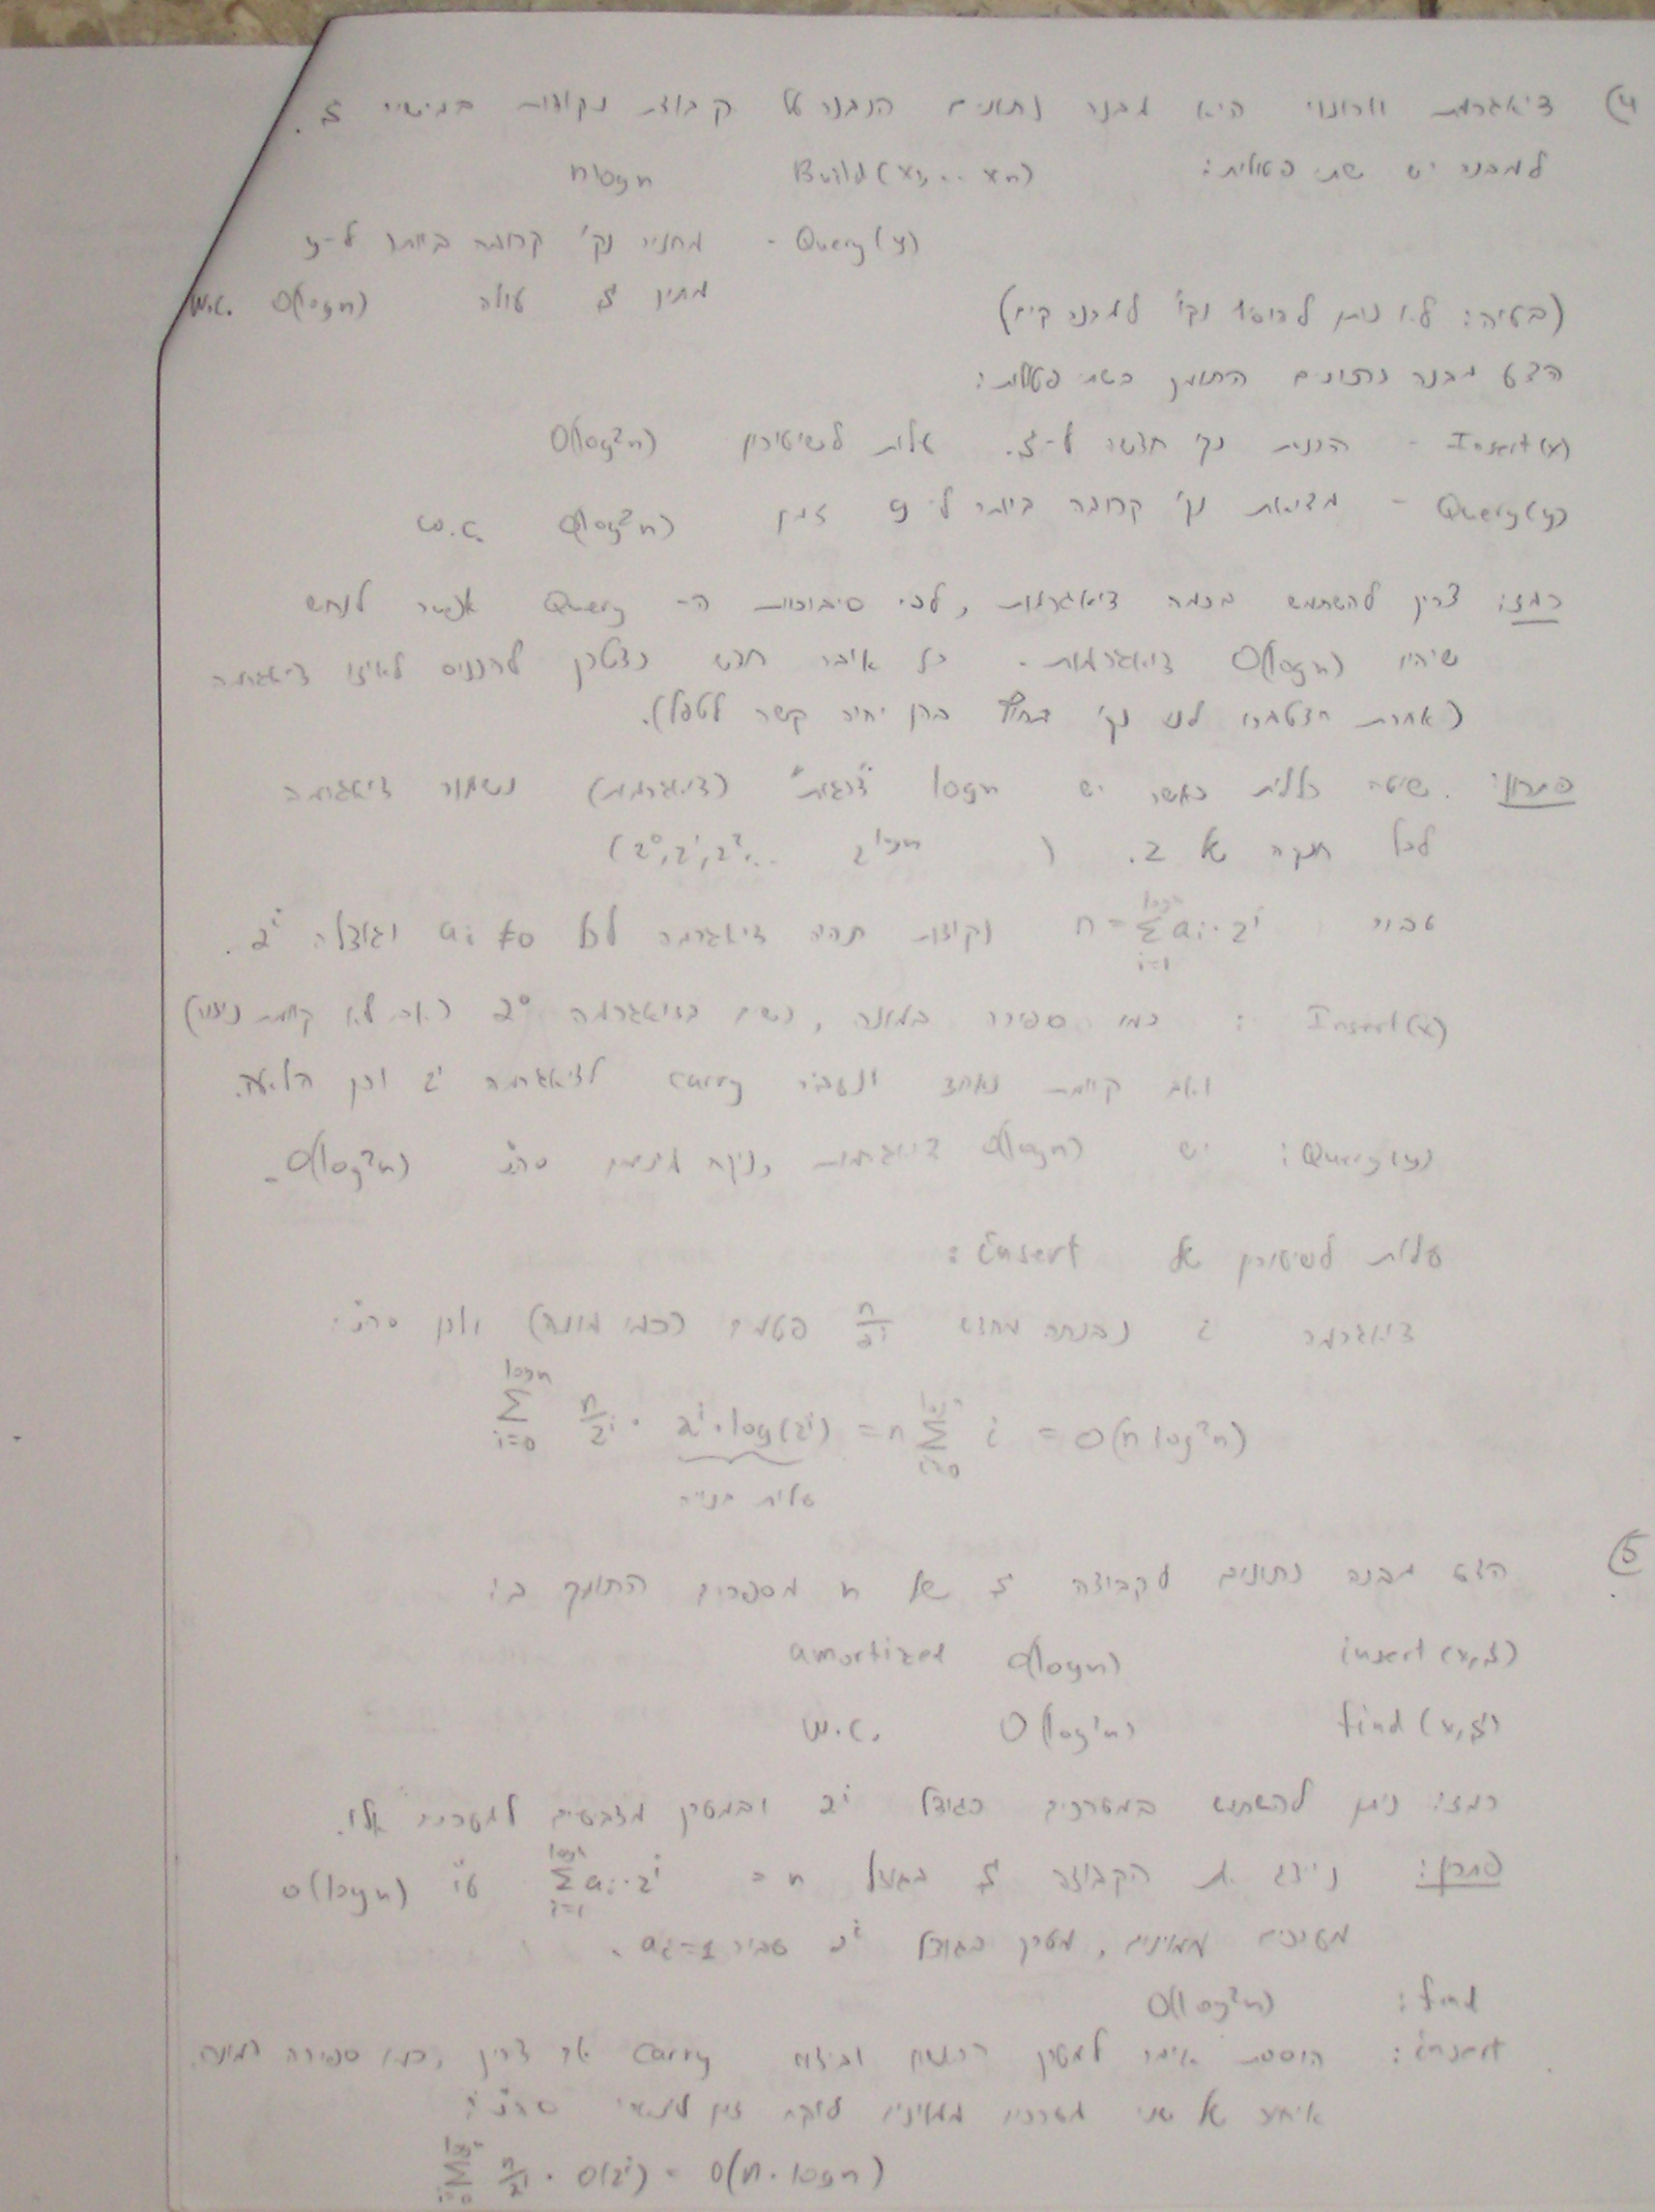 4) דיאגרמת וורונוי היא מבנה נתונים הנבנה על קבוצת נקודות במישור S.
למבנה יש שתי פעולות: Build(x1,... xn) nlogn
Query(y) - מחזיר נק' קרובה ביותר ל-y
מתוך S עולה O(logn) w.c.
(בעיה: לא ניתן להוסיף נק' למבנה קיים)
הצע מבנה נתונים התומך בשתי פעולות:
Insert(x) - הכנסת נק' חדשה ל-S. עלות לשיעורין O(log²n)
Query(y) - מציאת נק' קרובה ביותר ל-y זמן O(log²n) w.c.
רמז: צריך להשתמש בכמה דיאגרמות, לפי סיבוכיות ה- Query אפשר לנחש
שיהיו O(logn) דיאגרמות. כל איבר חדש נצטרך להכניס לאיזו דיאגרמה
(אחרת יצטברו לנו נק' בחוץ בהן יהיה קשה לטפל).
פתרון: שיטה כללית כאשר יש logn "דרגות" (דיאגרמות) נשמור דיאגרמה
לכל חזקה של 2. (2⁰,2¹,2²... 2^logn)
עבור n = Σ_{i=1}^{logn} ai·2^i נקודות תהיה דיאגרמה לכל ai ≠ 0 וגודלה 2^i.
Insert(x): כמו ספירה במונה, נשים בדיאגרמה 2⁰ (אם לא קיימת ניצור)
ואם קיימת נאחד ונעביר carry לדיאגרמה 2¹ וכן הלאה.
Query(y): יש O(logn) דיאגרמות, ניקח מינימום סה"כ O(log²n).
עלות לשיעורין של insert:
דיאגרמה i נבנתה מחדש n/2^i פעמים (כמו מונה) ולכן סה"כ:
Σ_{i=0}^{logn} n/2^i · 2^i·log(2^i) = n Σ_{i=0}^{logn} i = O(n log²n)
עלות בנייה
5) הצע מבנה נתונים לקבוצה S של n מספרים התומך ב:
insert(x,S) O(logn) amortized
find(x,S) O(log²n) w.c.
רמז: ניתן להשתמש במערכים בגודל 2^i ובמערך מצביעים למערכים אלו.
פתרון: נייצג את הקבוצה S בגודל n = Σ_{i=1}^{logn} ai·2^i ע"י O(logn)
מערכים ממוינים, מערך בגודל 2^i עבור ai=1.
find: O(log²n)
insert: הוספת איבר למערך הראשון וביצוע carry אם צריך, כמו ספירה במונה.
איחוד של שני מערכים ממוינים לוקח זמן לינארי סה"כ:
Σ_{i=0}^{logn} n/2^i · O(2^i) = O(n·logn)